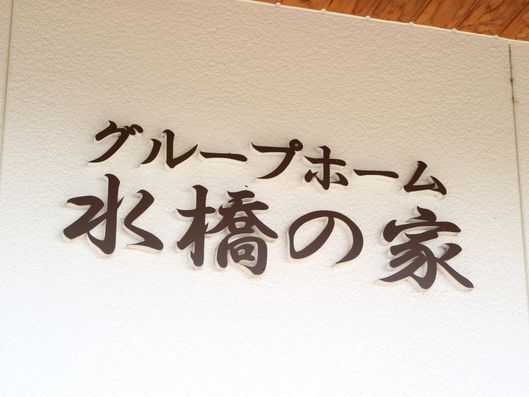 グループホーム
水橋の家